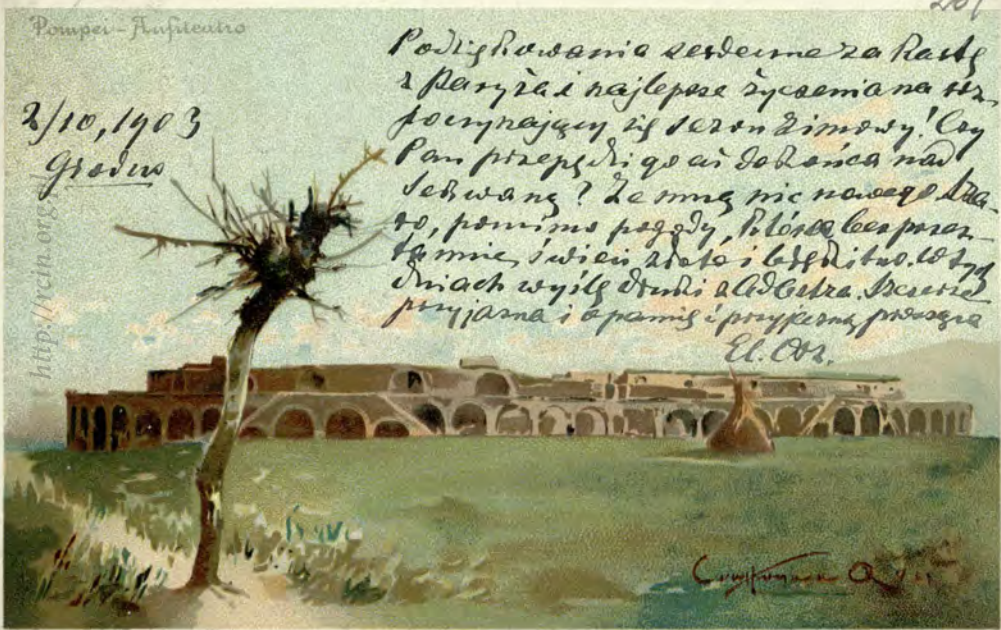 Pompei - Anfiteatro
2/10, 1903
Grodno
Podziękowania serdeczne za kartę
z Paryża i najlepsze życzenia na roz-
poczynający się sezon zimowy! Czy
Pan przepędzi go aż do końca nad
Sekwaną? Ze mną nic nowego. Sza-
ro, pomimo pogody, która bez
świeci złoto i błękitno. W tych
dniach wyślę druki. Szczerze
przyjazna i o pamięć i przyjaźń prosząca
El. Orz.
http://rcin.org.pl